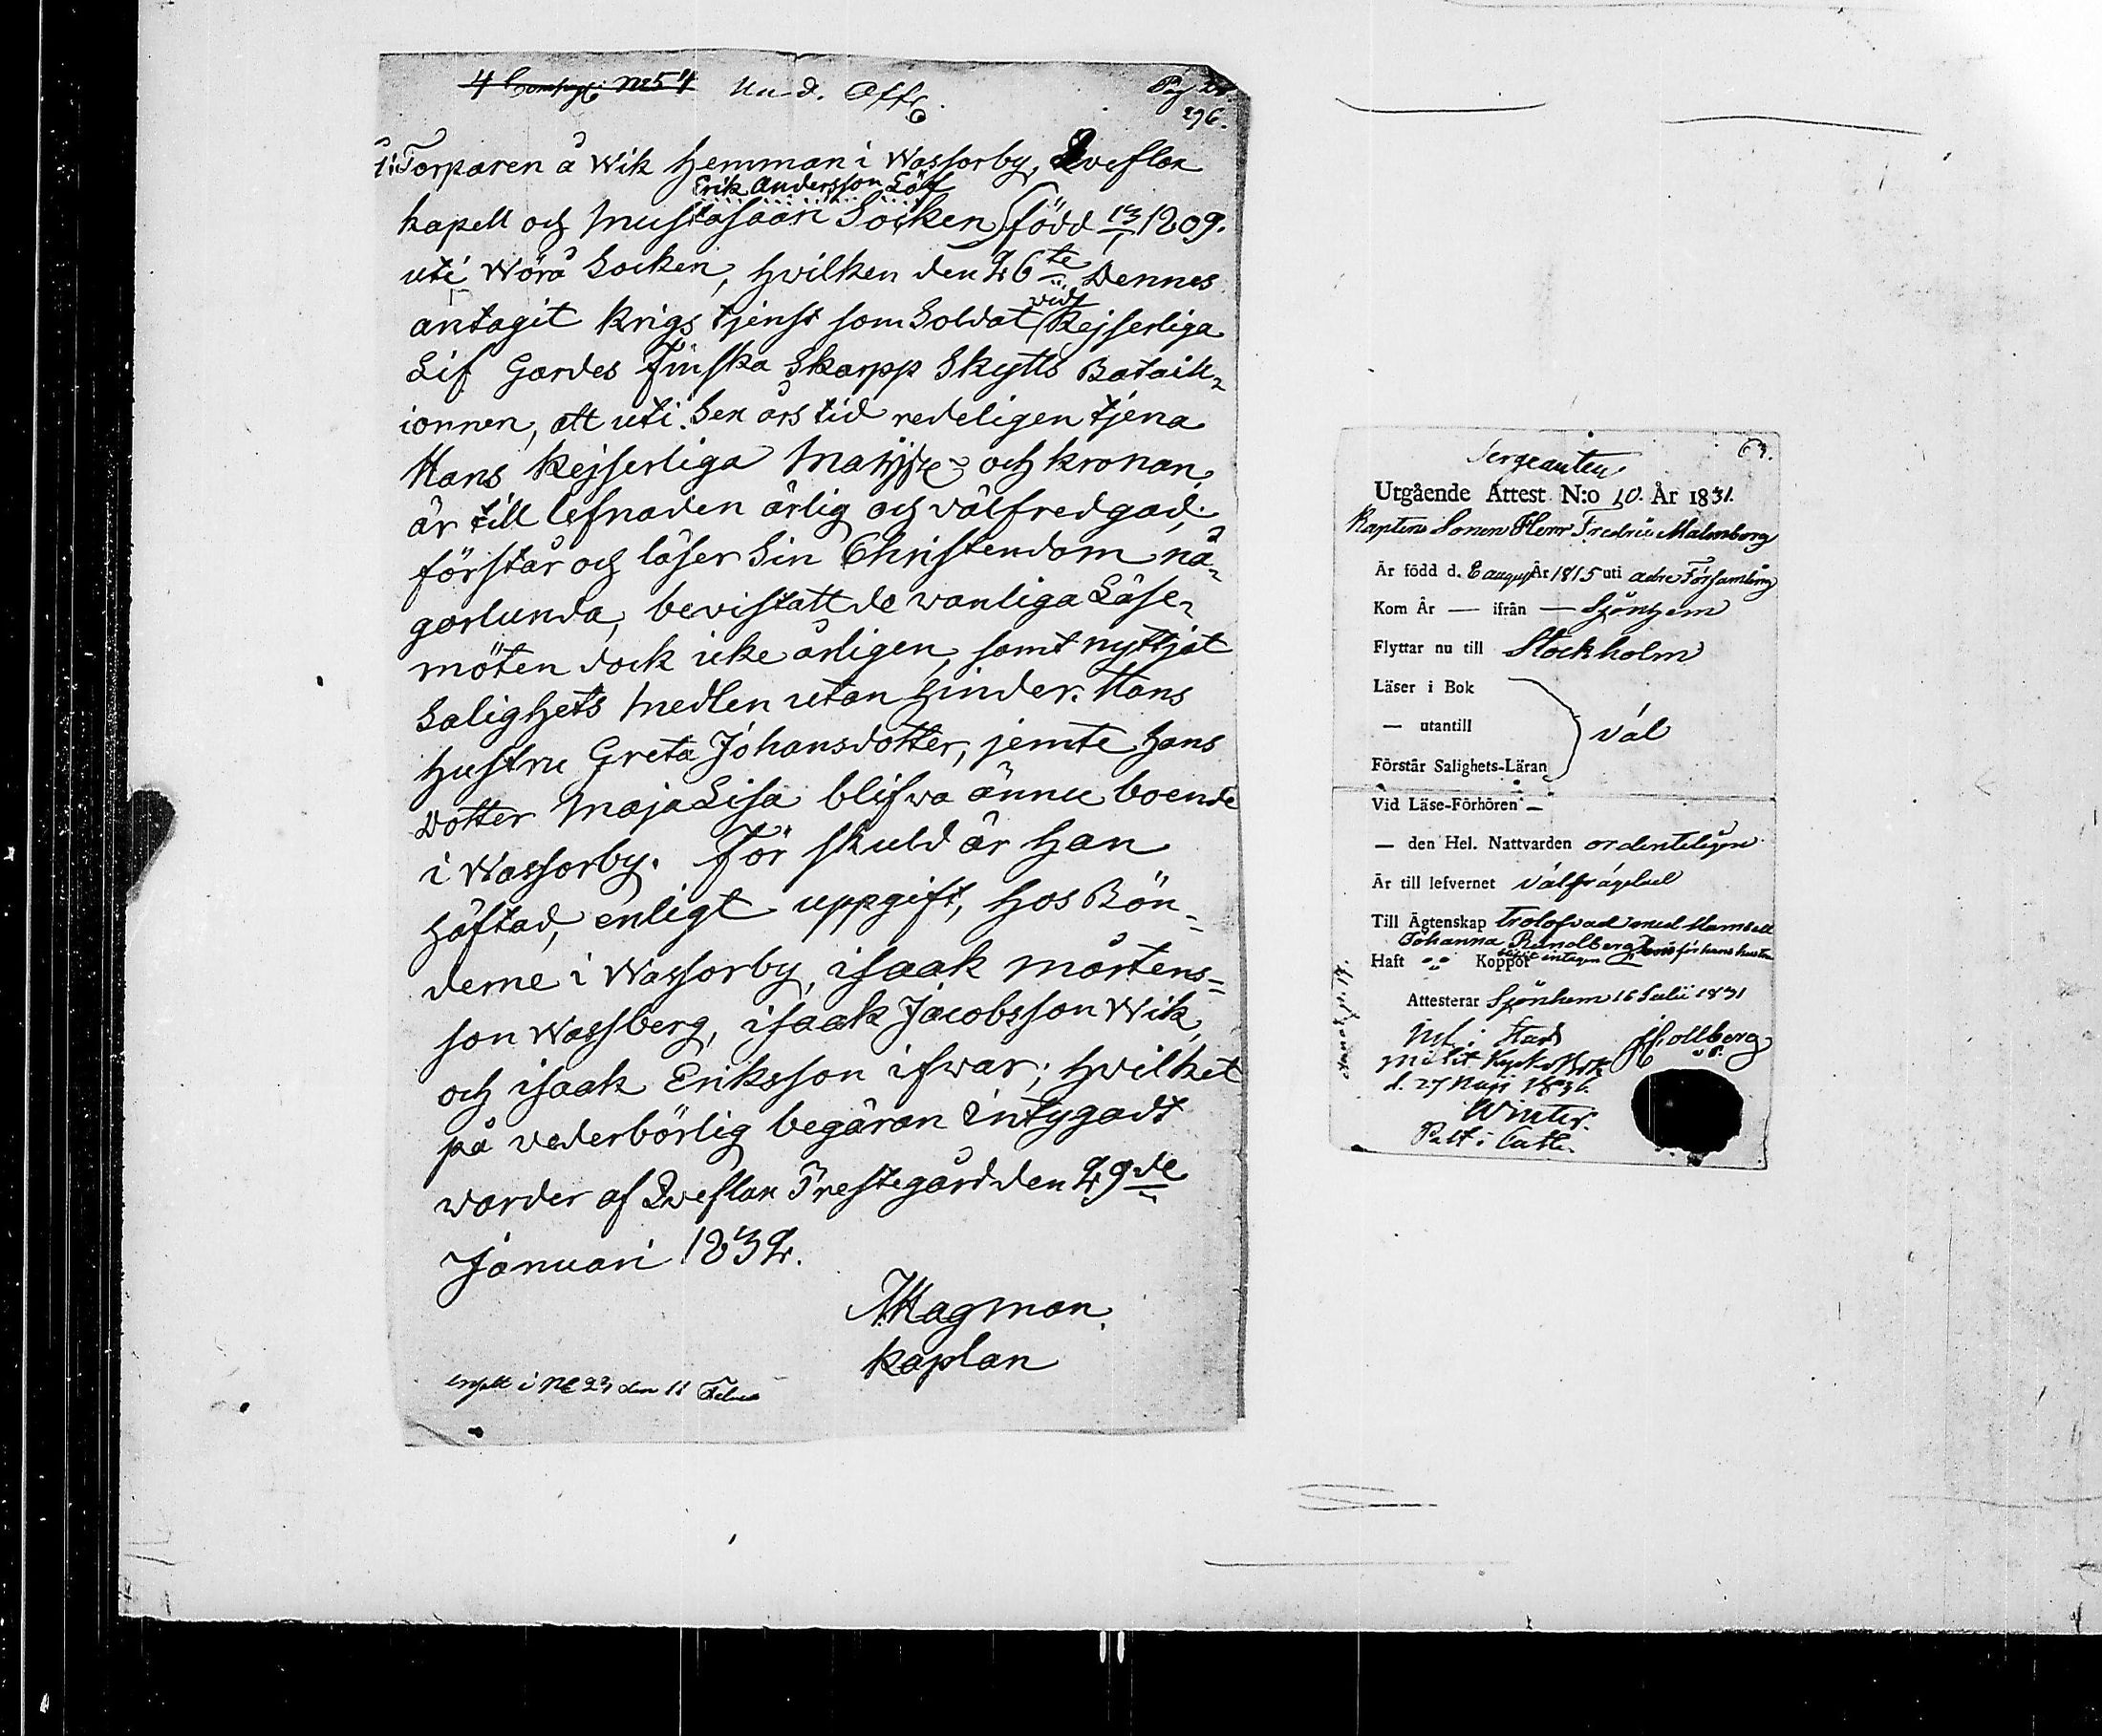 Un-d. Off.
Pag
296.
Torparen å Wik Hemman i Wassorby, Qveflax
Erik Andersson Löf
kapell och Mustasaari Socken född 13/1 1809.
uti Wörå Socken, hvilken den 26te Dennes
antagit krigs tjenst som Soldat vid Kejserliga
Lif Gardes Finska Skarpp Skytts Bataill-
ionnen, att uti Sex års tid redeligen tjena
Hans Kejserliga Majst:t och kronan,
är till lefnaden ärlig och välfredgad,
förstår och läser Sin Christendom nå-
gorlunda, bevistatt de wanliga Läse-
möten dock icke årligen, samt nyttjat
Salighets Medlen utan hinder. Hans
Hustru Greta Johansdotter, jemte hans
dotter Maja Lisa blifva ännu boende
i Wassorby. För skuld är han
häftad, enligt uppgift, hos Bön-
derne i Wassorby, isaak mårtens-
son Wassberg, isaak Jacobsson Wik,
och isaak Eriksson ifwar; hvilket
på vederbörlig begäran intygadt
warder af Qveflax Prestegård den 29de
Januari 1832.
Hagman.
kaplan
i den 11 Febru
63.
Sergeanten
Utgående Attest N:o 10. År 1831.
Kaptens Sonen Herr Fredric Malmberg
Är född d. 8 August År 1815 uti Församling
Kom År — ifrån — Sjönhem
Flyttar nu till Stockholm
Läser i Bok
— utantill väl
Förstår Salighets-Läran
Vid Läse-Förhören —
— den Hel. Nattvarden ordenteligen
Är till lefvernet välfrägdad
Till Ägtenskap trolofvad med Mamsell
Johanna Rundberg för hans hustru
Haft Koppor
Attesterar Sjönhem 16 Julii 1831
Hollberg
d. 27 Maji
Winter.